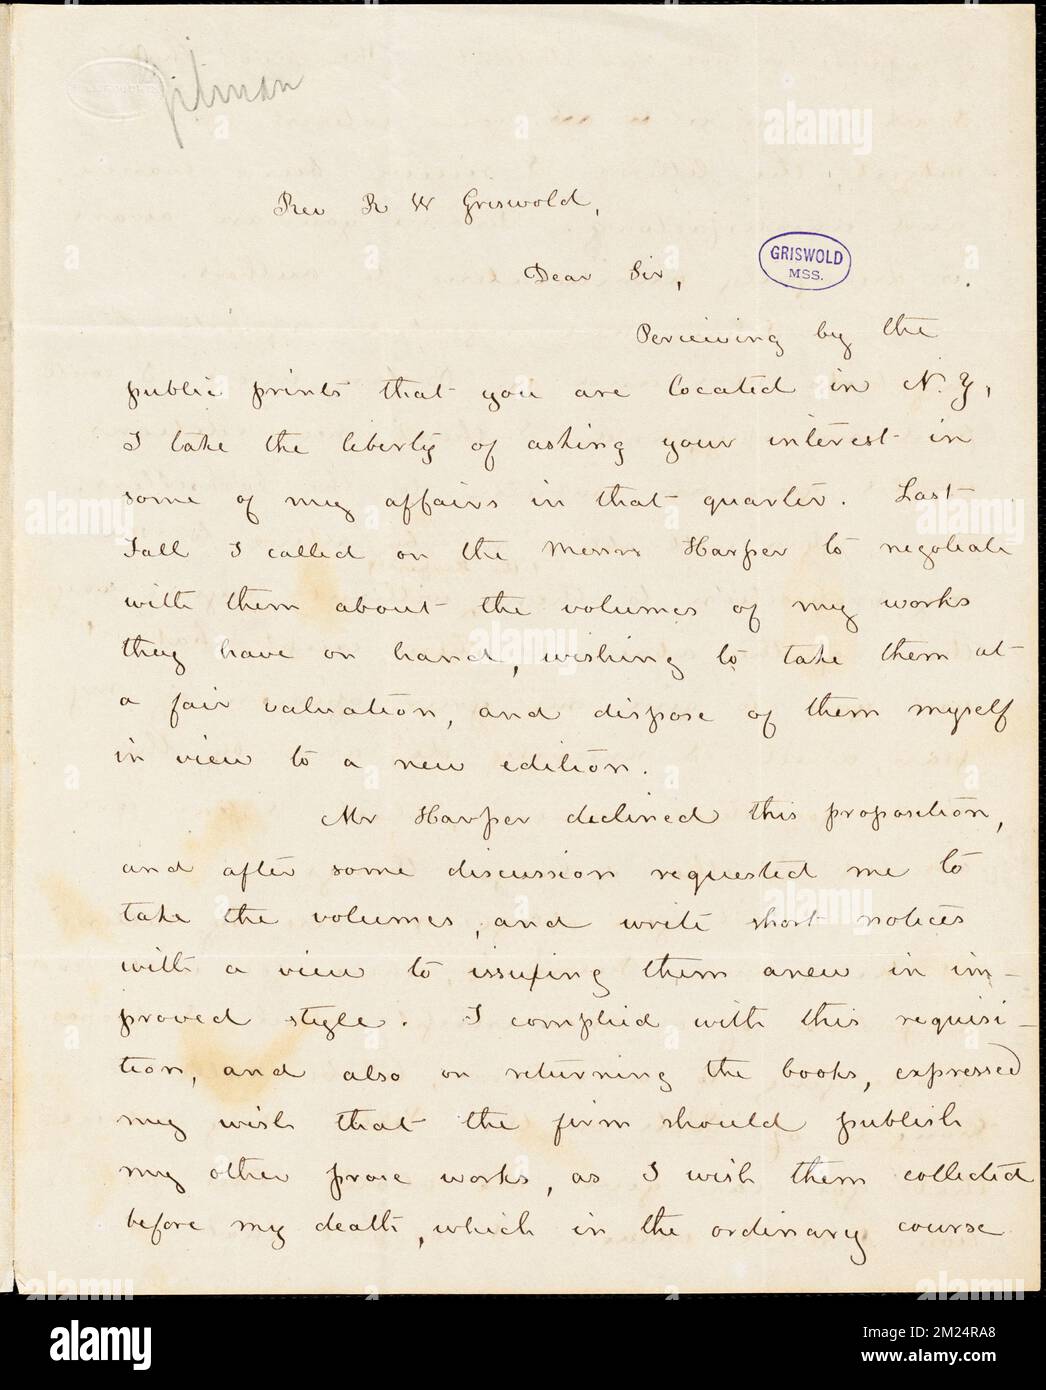 Gilman
Rev R W Griswold,
Dear Sir,
GRISWOLD
MSS.
Perceiving by the
public prints that you are located in N. Y,
I take the liberty of asking your interest in
some of my affairs in that quarter. Last
Fall I called on the Messrs Harper to negotiate
with them about the volumes of my works
they have on hand, wishing to take them at
a fair valuation, and dispose of them myself
in view to a new edition.
Mr Harper declined this proposition,
and after some discussion requested me to
take the volumes, and write short notices
with a view to issuing them anew in im-
proved style. I complied with this requisi-
tion, and also on returning the books, expressed
my wish that the firm should publish
my other prose works, as I wish them collected
before my death, which in the ordinary course
alamy
Image ID: 2M24RA8
www.alamy.com